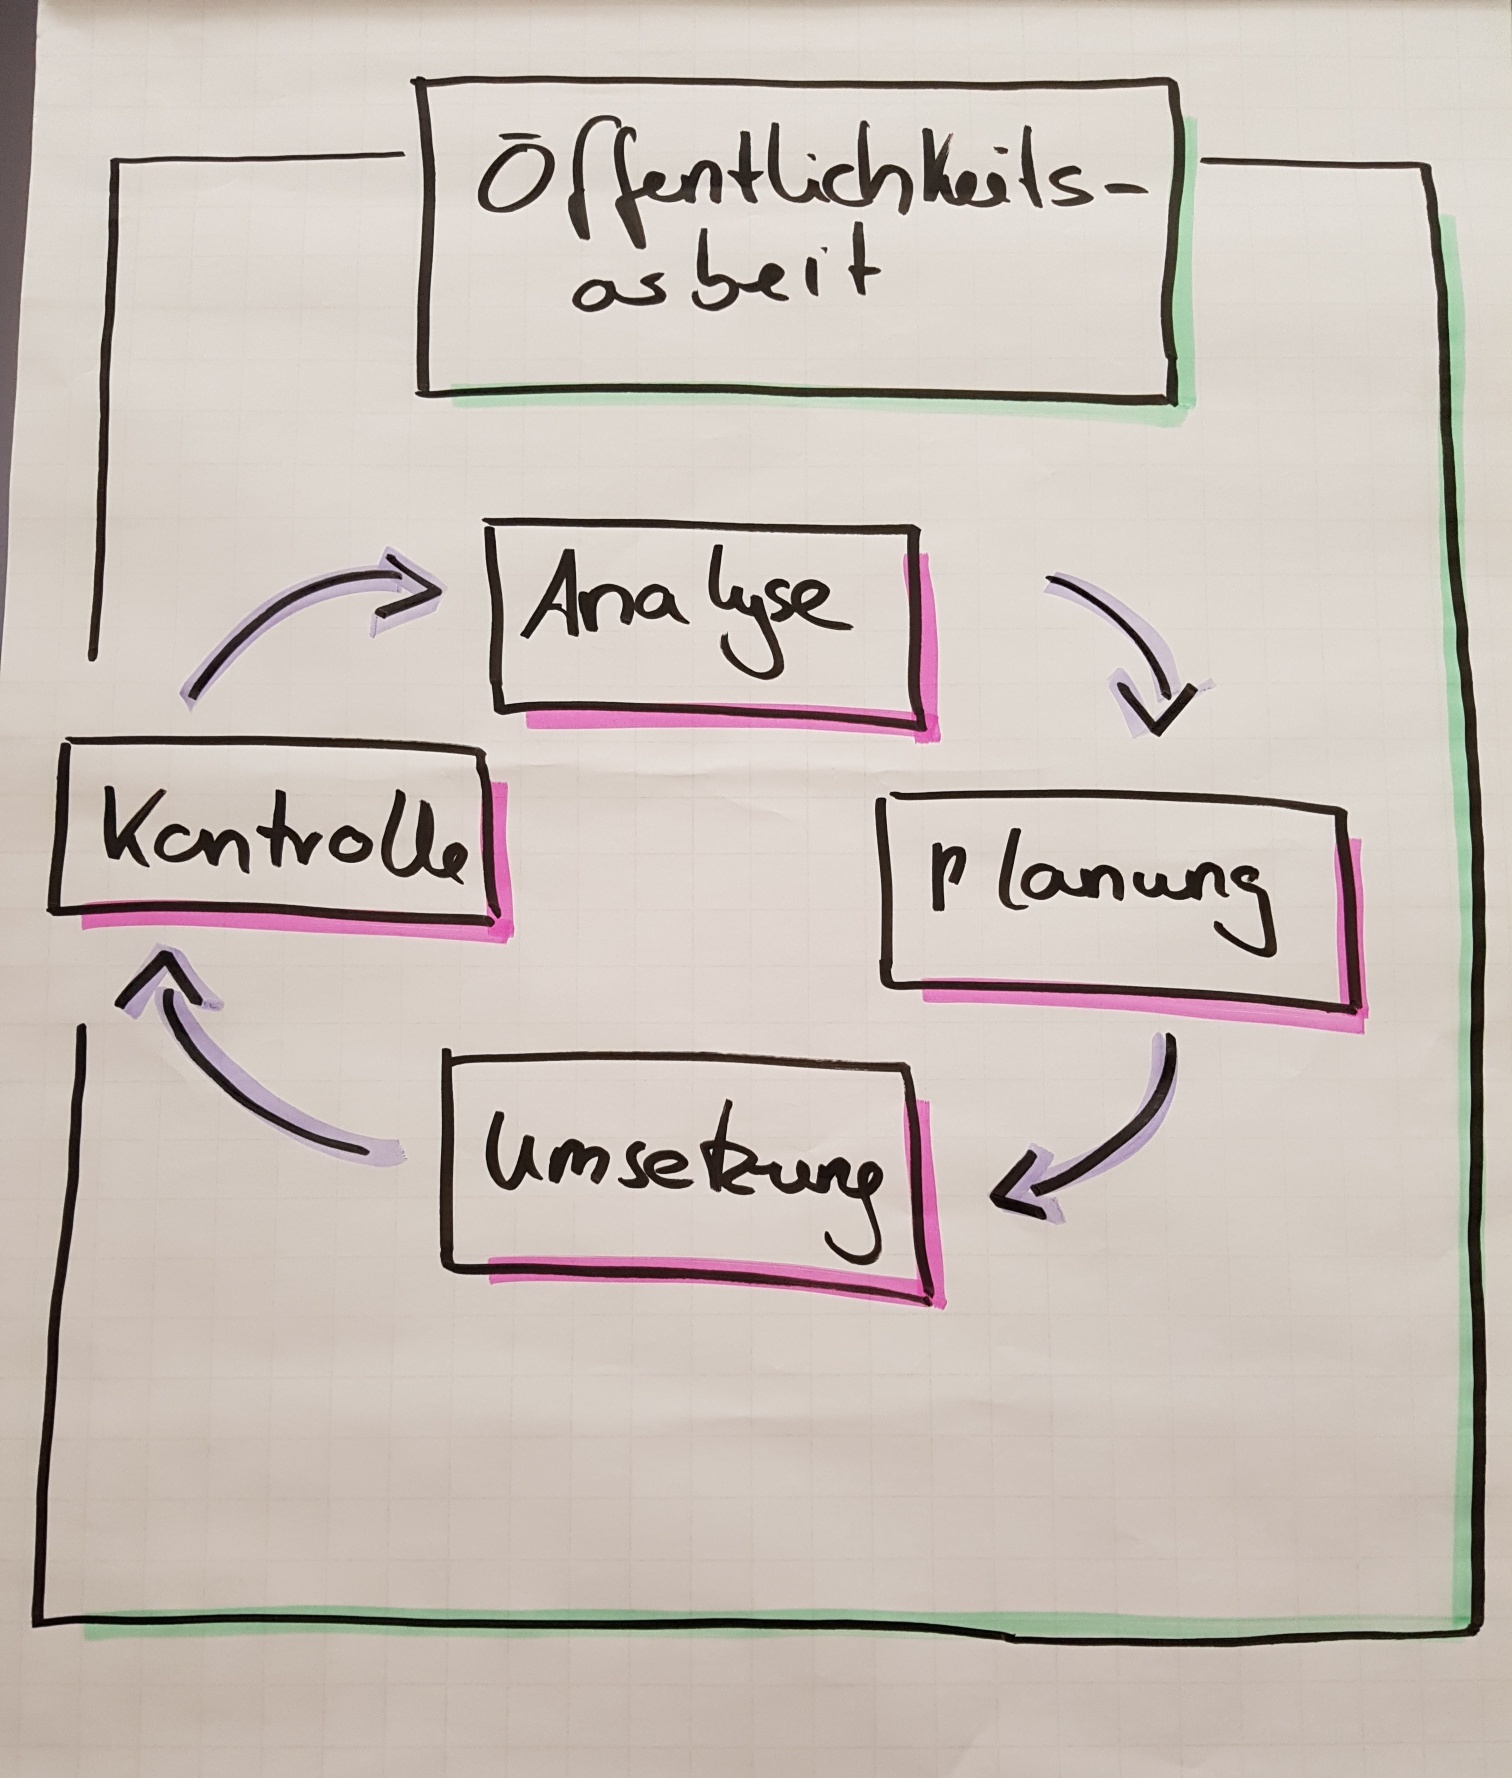 Öffentlichkeits-
arbeit
Analyse
Kontrolle
Planung
Umsetzung